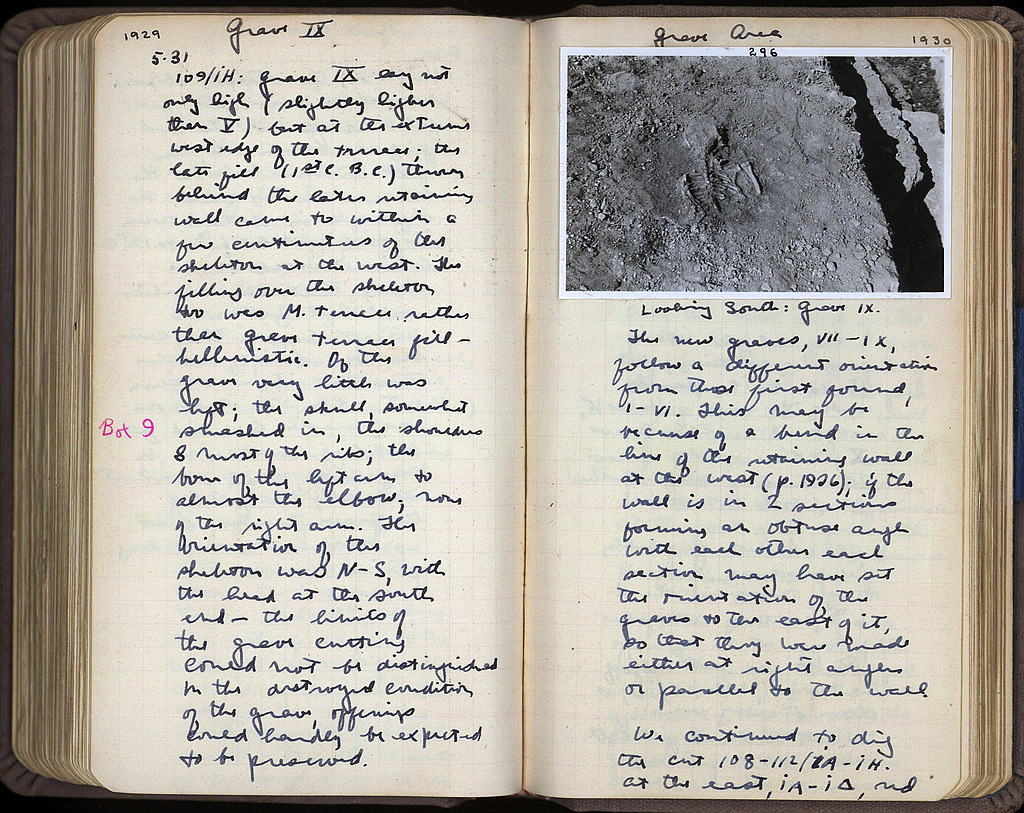 1929
Grave IX
5·31
109/ΙΗ: Grave IX lay not
only high (slightly higher
than V) but at the extreme
west edge of the terrace; the
late fill (1st C. B.C.) thrown
behind the later retaining
wall came to within a
few centimeters of the
skeleton at the west. The
filling over the skeleton
too was M. Terrace, rather
than grave terrace fill –
hellenistic. Of the
grave very little was
left; the skull, somewhat
Bot 9
smashed in, the shoulders
& most of the ribs; the
bone of the left arm to
almost the elbow; none
of the right arm. The
orientation of the
skeleton was N–S, with
the head at the south
end – the limits of
the grave cutting
could not be distinguished
In the destroyed condition
of the grave, offerings
could hardly be expected
to be preserved.
Grave Area
1930
296
Looking South: Grave IX.
The new graves, VII–IX,
follow a different orientation
from those first found,
I–VI. This may be
because of a bend in the
line of the retaining wall
at the west (p. 1936); if the
wall is in 2 sections
forming an obtuse angle
with each other each
section may have set
the orientation of the
graves to the east of it,
so that they were made
either at right angles
or parallel to the wall.
We continued to dig
the cut 108–112/ΙΑ–ΙΗ.
at the east, ΙΑ–ΙΔ, red